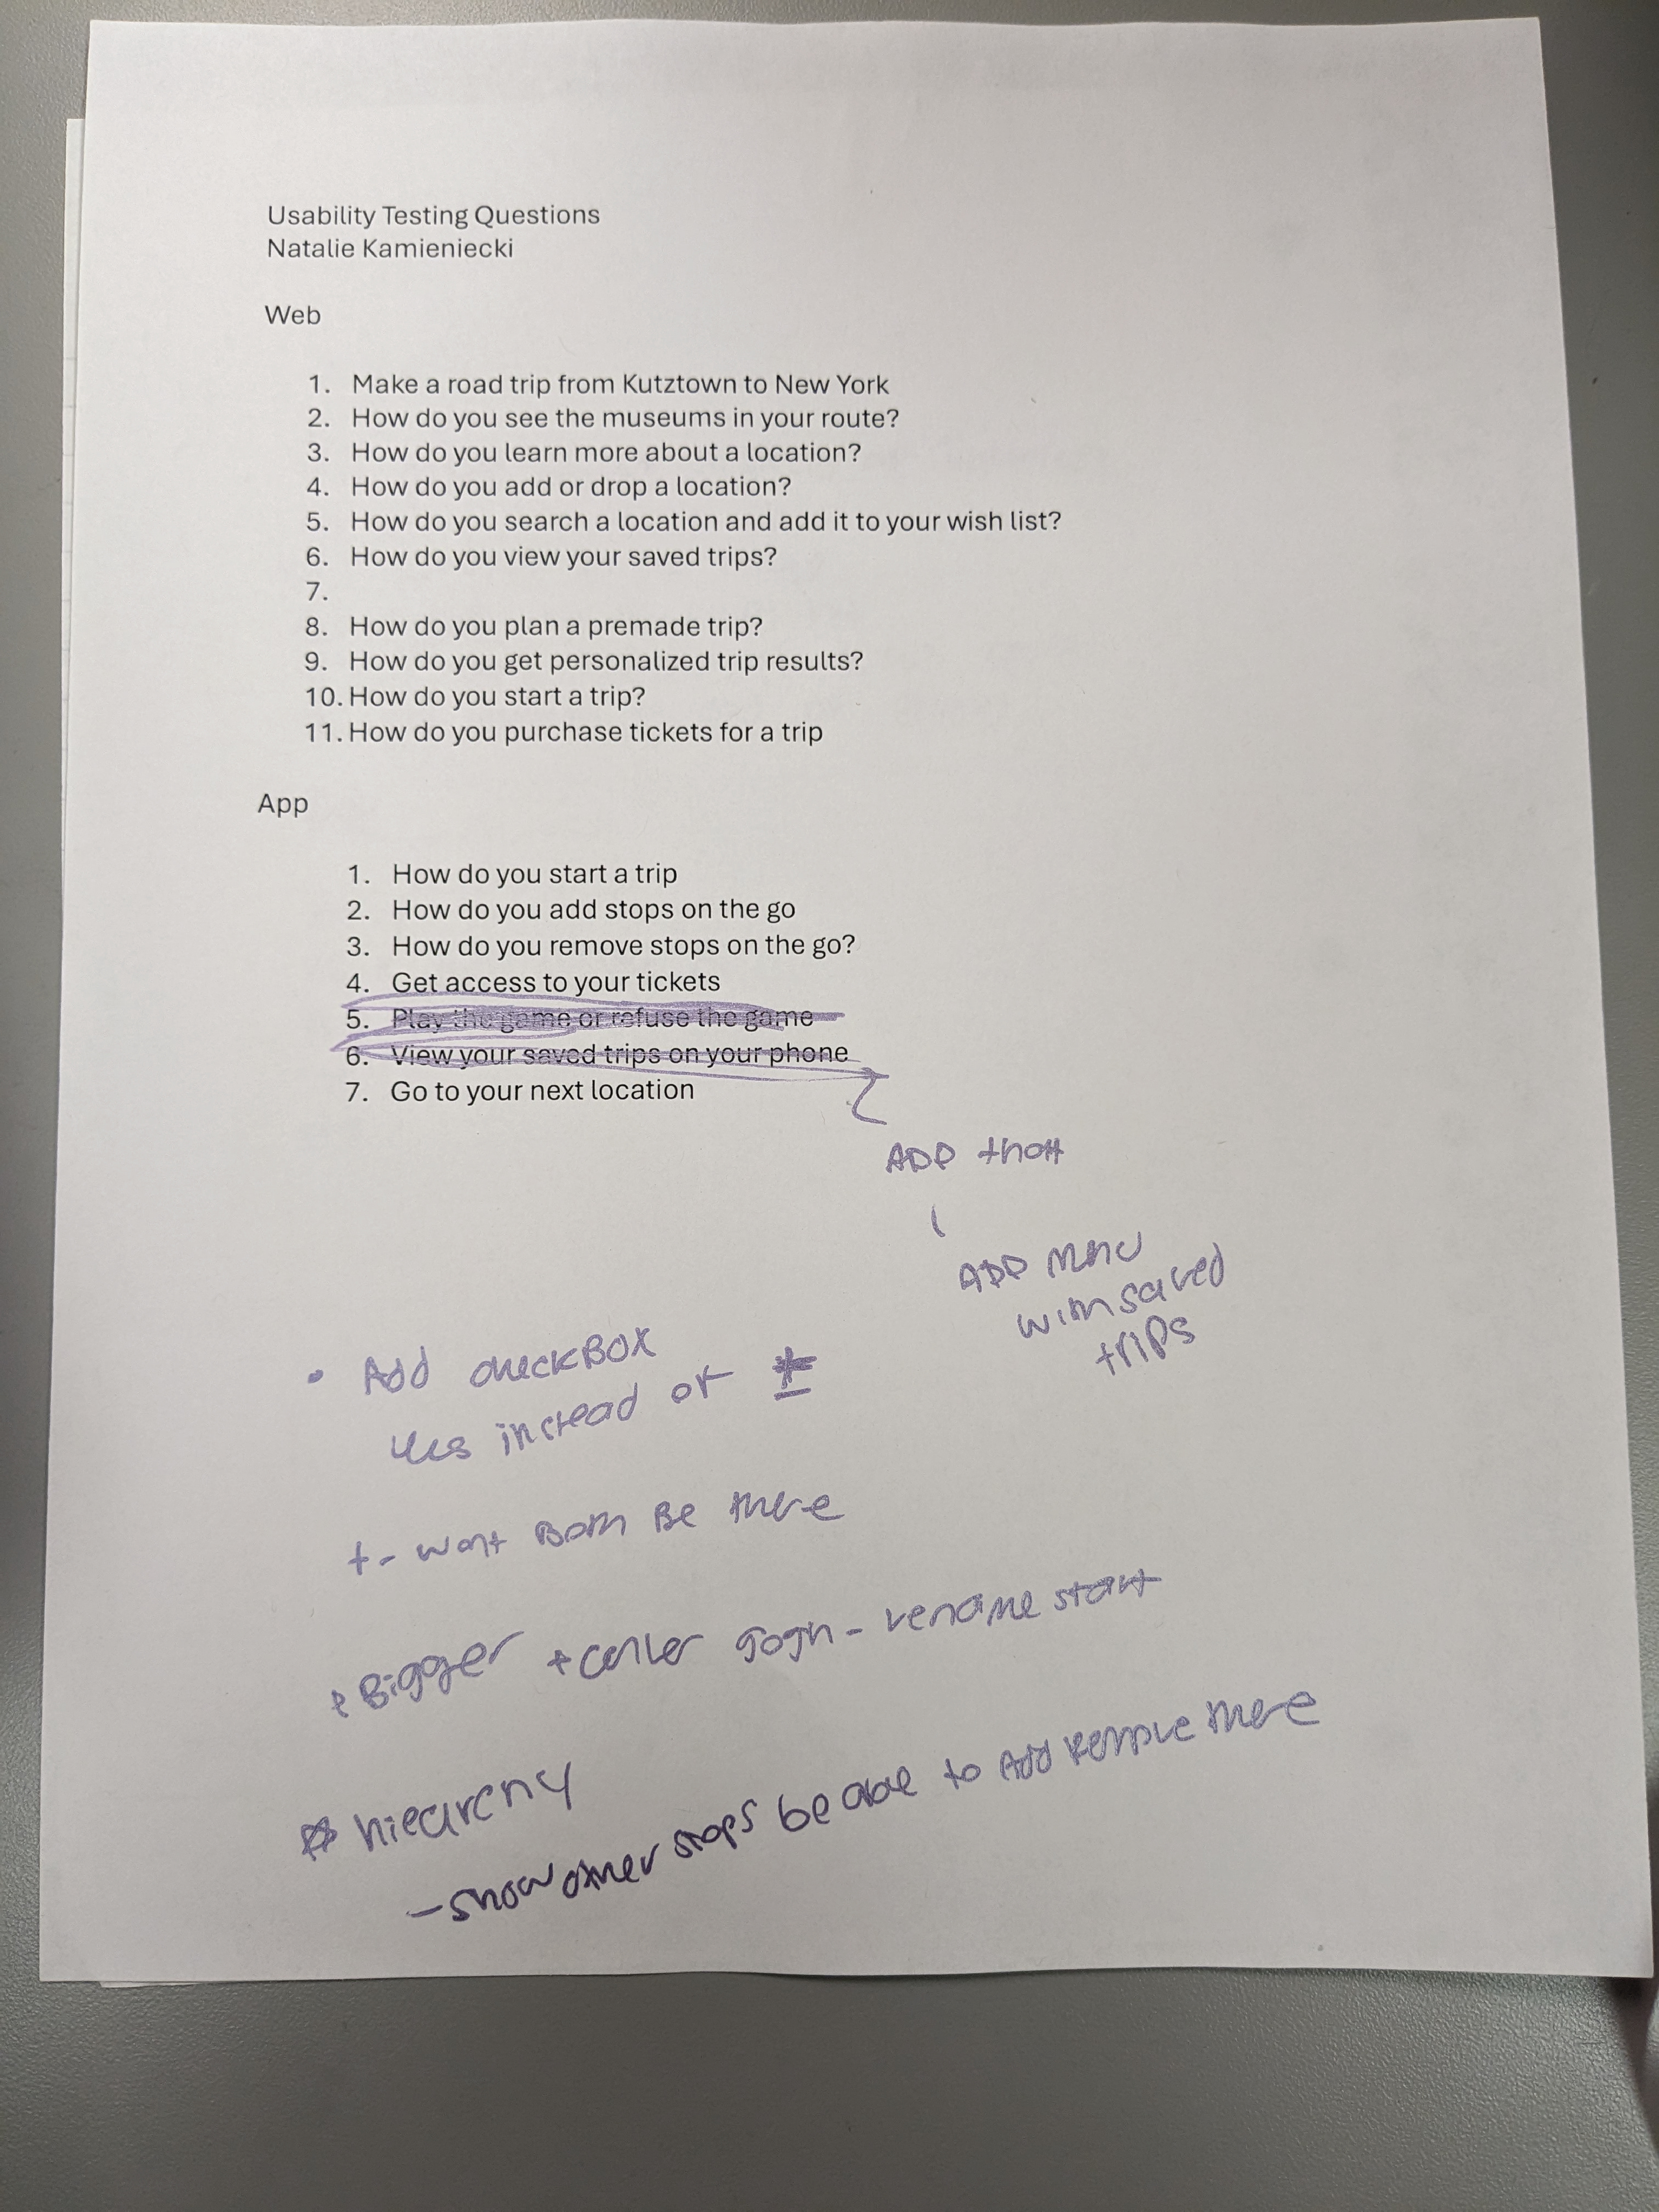 Usability Testing Questions
Natalie Kamieniecki
Web
1. Make a road trip from Kutztown to New York
2. How do you see the museums in your route?
3. How do you learn more about a location?
4. How do you add or drop a location?
5. How do you search a location and add it to your wish list?
6. How do you view your saved trips?
7.
8. How do you plan a premade trip?
9. How do you get personalized trip results?
10. How do you start a trip?
11. How do you purchase tickets for a trip
App
1. How do you start a trip
2. How do you add stops on the go
3. How do you remove stops on the go?
4. Get access to your tickets
5. Play the game or refuse the game
6. View your saved trips on your phone
7. Go to your next location
ADD that
ADD menu
with saved
trips
• Add checkBox
yes instead of ±
+- wont Both Be there
+ Bigger + center - rename start
hiearchy
- show other stops be able to Add remove there